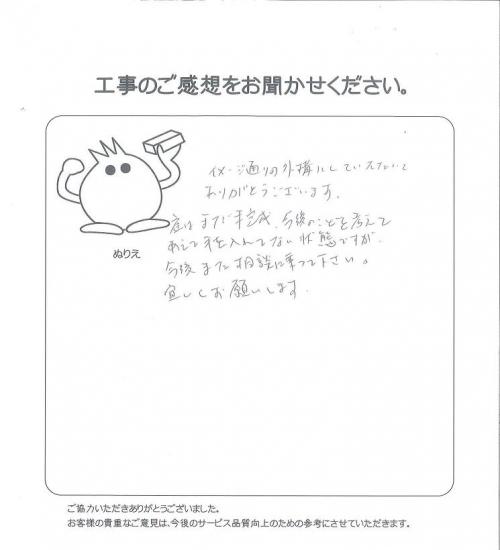 工事のご感想をお聞かせください。
イメージ通りの外構にしていただいて
ありがとうございます。
庭はまだ未完成、今後のことを考えて
あえて手を入れてない状態ですが、
今後また相談に乗って下さい。
宜しくお願いします。
ぬりえ
ご協力いただきありがとうございました。
お客様の貴重なご意見は、今後のサービス品質向上のための参考にさせていただきます。